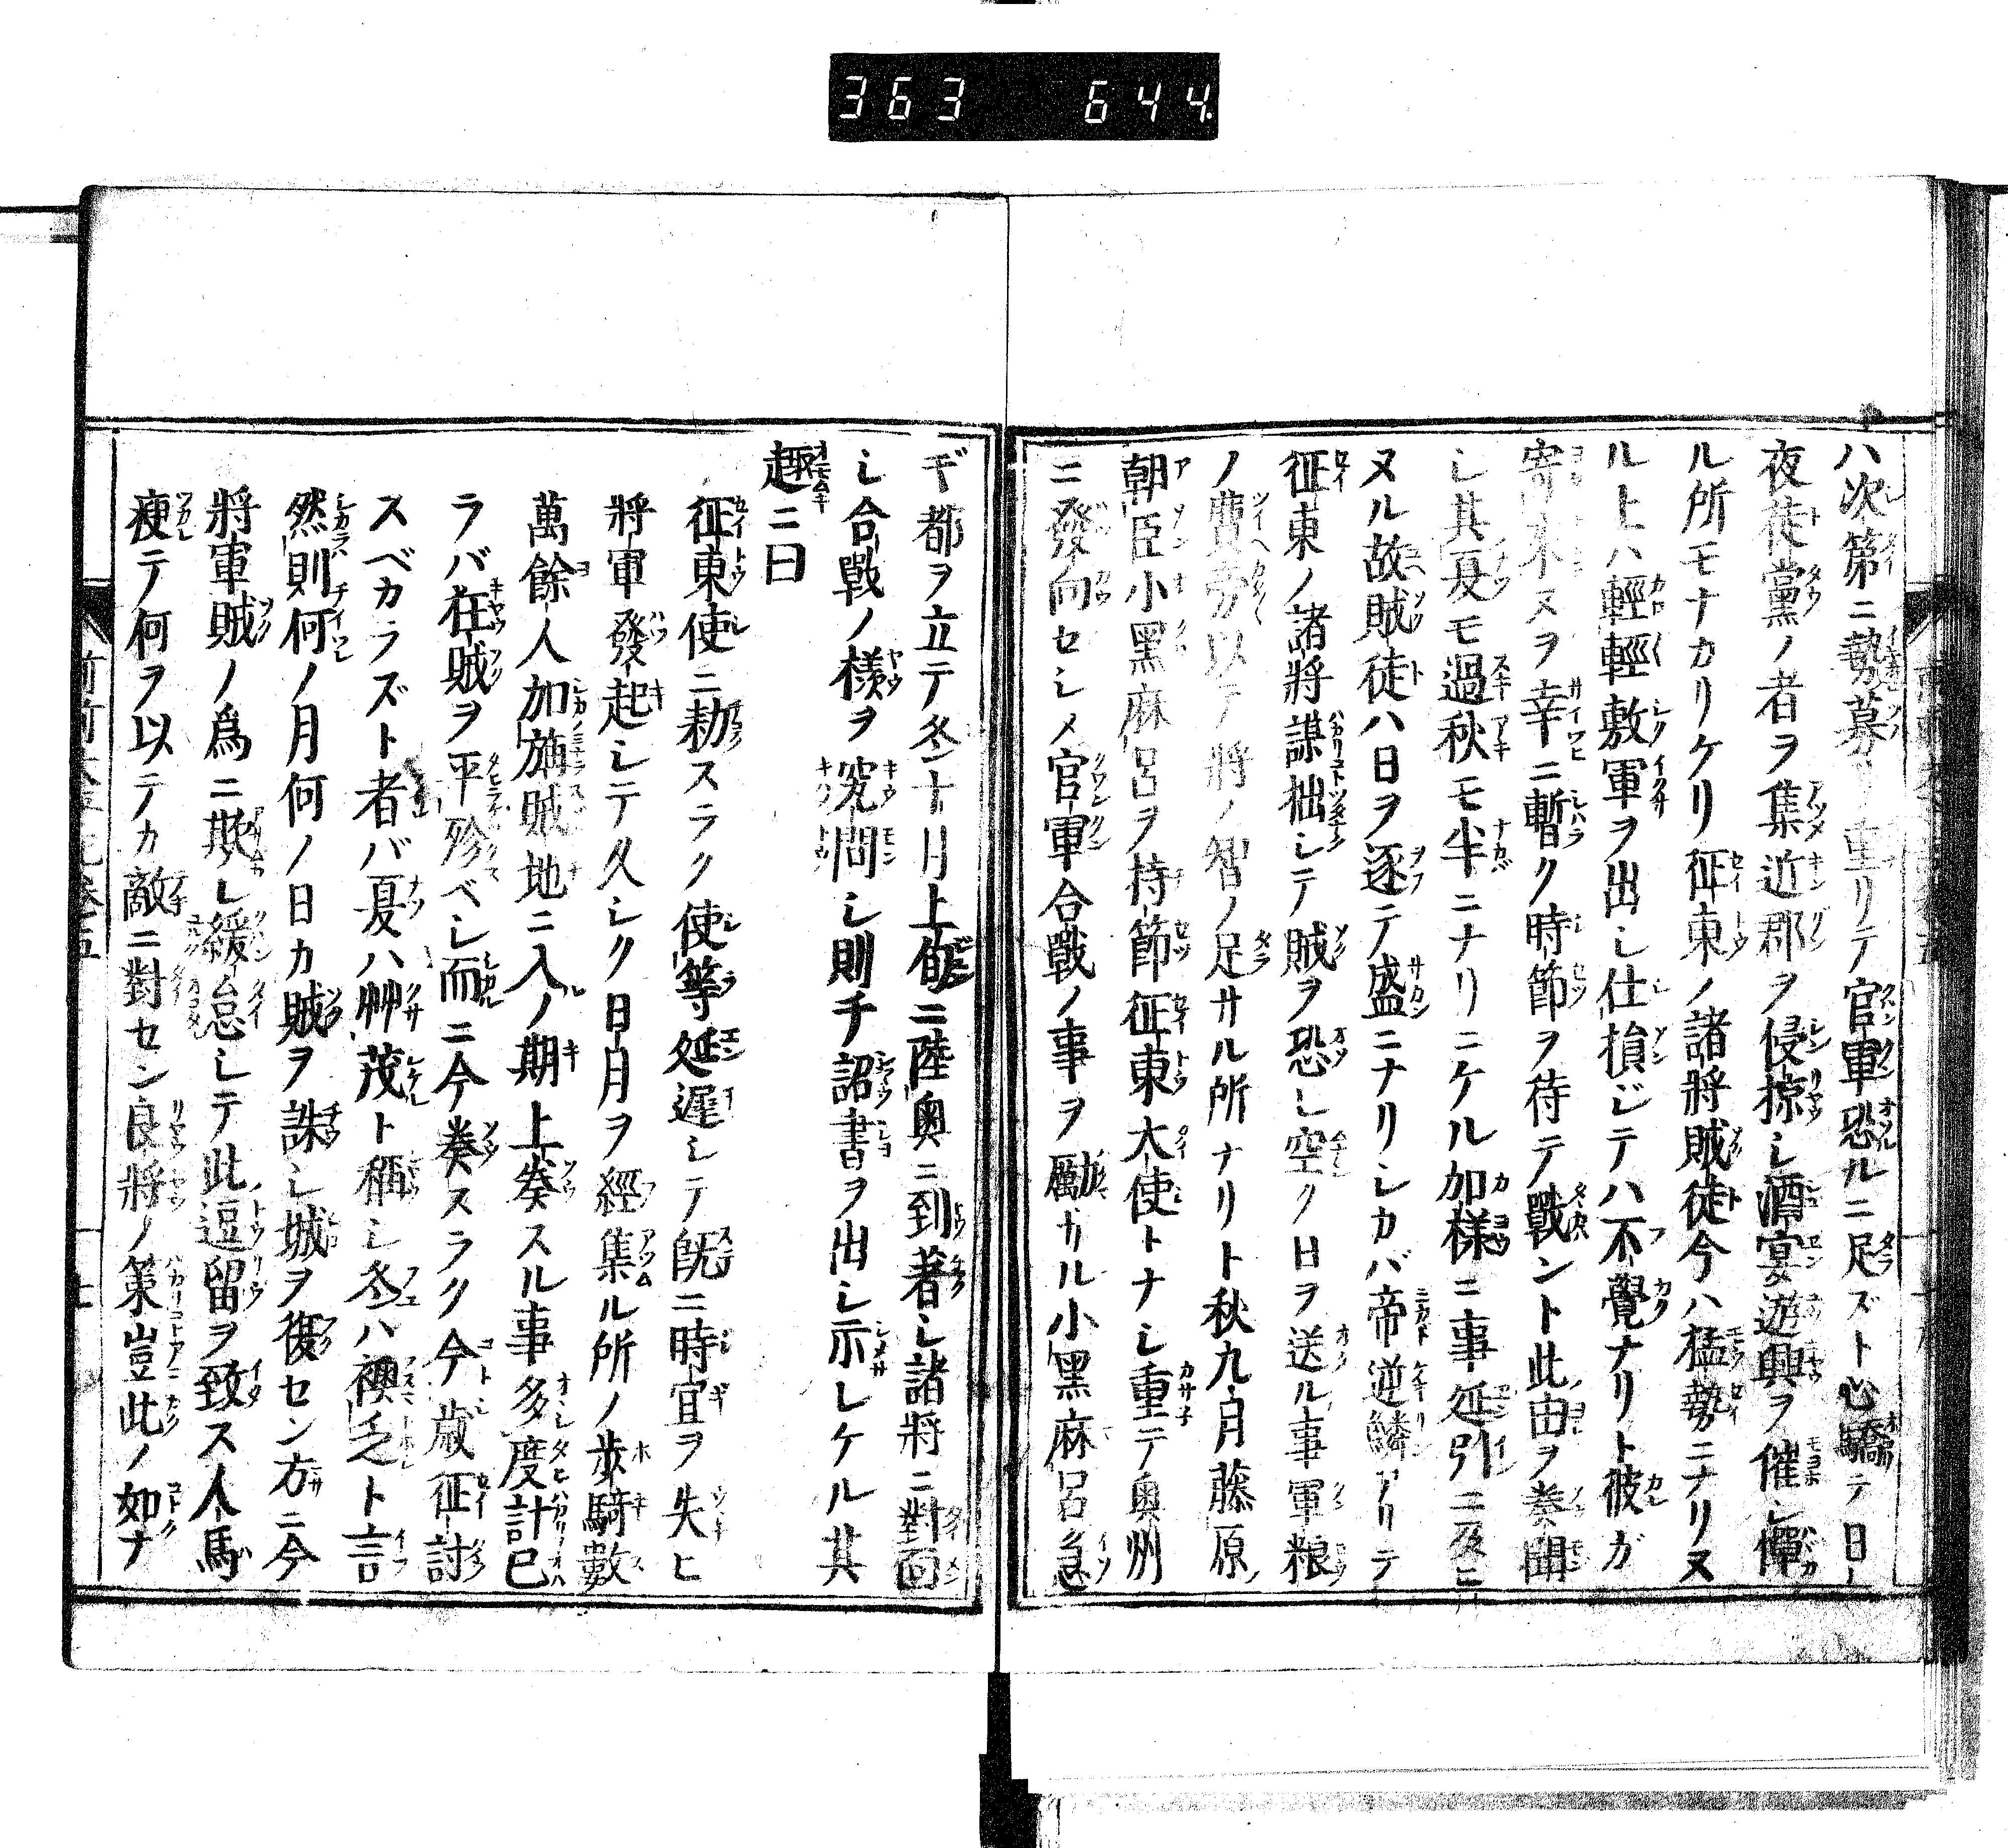 363 644.
ハ次第ニ勢募リ重リテ官軍恐ルニ足ズト心驕テ日
夜徒黨ノ者ヲ集近郡ヲ侵掠シ酒宴遊興ヲ催シ憚
ル所モナカリケリ征東ノ諸將賊徒今ハ猛勢ニナリヌ
ル上ハ輕輕敷軍ヲ出シ仕損ジテハ不覺ナリト彼ガ
寄来ヌヲ幸ニ暫ク時節ヲ待テ戰ント此由ヲ奏聞
シ其夏モ過秋モ半ニナリニケル加様ニ事延引ニ及ニ
ヌル故賊徒ハ日ヲ逐テ盛ニナリシカバ帝逆鱗アリテ
征東ノ諸將謀拙シテ賊ヲ恐レ空ク日ヲ送ル事軍粮
ノ費旁以テ將ノ智ノ足サル所ナリト秋九月藤原
朝臣小黑麻呂ヲ持節征東大使トナシ重テ奧州
ニ發向セシメ官軍合戰ノ事ヲ勵サル小黑麻呂急
ギ都ヲ立テ冬十月上旬ニ陸奧ニ到著シ諸將ニ對面
シ合戰ノ様ヲ究問シ則チ詔書ヲ出シ示シケル其
趣ニ曰
征東使ニ勅スラク使等延遲シテ既ニ時宜ヲ失ヒ
將軍發起シテ久シク日月ヲ經集ル所ノ歩騎數
萬餘人加旃賊地ニ入ノ期上奏スル事多度計已
ラバ在賊ヲ平殄ベシ而ニ今奏スラク今歳征討
スベカラズト者バ夏ハ艸茂ト稱シ冬ハ襖乏ト言
然則何ノ月何ノ日カ賊ヲ誅シ城ヲ復セン方ニ今
將軍賊ノ爲ニ欺レ緩怠シテ此逗留ヲ致ス人馬
瘦テ何ヲ以テカ敵ニ對セン良將ノ策豈此ノ如ナ